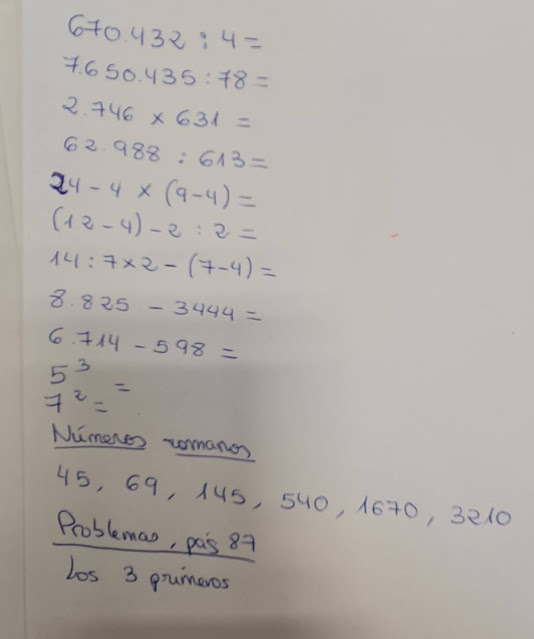 670.432 : 4 =
7.650.435 : 78 =
2.746 × 631 =
62.988 : 613 =
24 - 4 × (9-4) =
(12 - 4) - 2 : 2 =
14 : 7 × 2 - (7-4) =
8.825 - 3444 =
6.714 - 598 =
5³ =
7² =
Números romanos
45, 69, 145, 540, 1670, 3210
Problemas, pág 87
Los 3 primeros